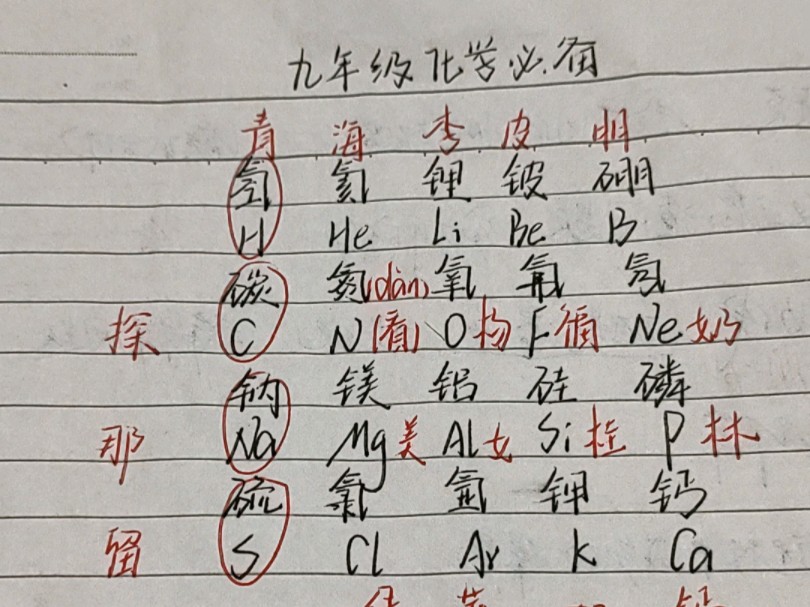 九年级化学必备
青 海 李 皮 明
氢 氦 锂 铍 硼
H He Li Be B
碳 氮(dàn) 氧 氟 氖
探 C N(看) O 扬 F 循 Ne 奶
钠 镁 铝 硅 磷
那 Na Mg 美 Al 女 Si 桂 P 林
硫 氯 氩 钾 钙
留 S Cl Ar K Ca